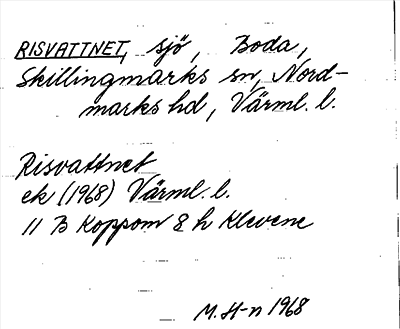 RISVATTNET, sjö, Boda,
Skillingmarks sn, Nord-
marks hd, Värml. l.
Risvattnet
ek (1968) Värml. l.
11 B Koppom 8 h Klevene
M. H-n 1968